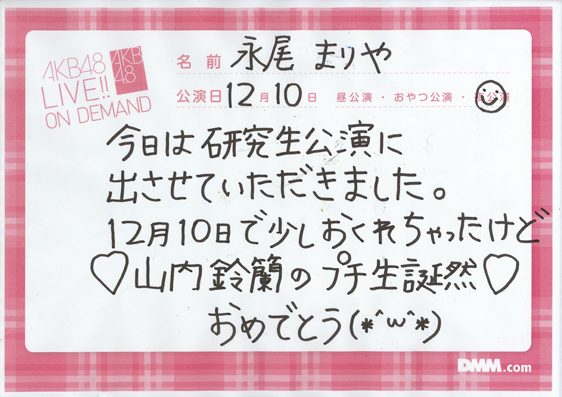 AKB48
LIVE!!
ON DEMAND
AKB
48
名前 永尾 まりや
公演日 12月10日 昼公演・おやつ公演・公演
今日は研究生公演に
出させていただきました。
12月10日で少しおくれちゃったけど
♡山内鈴蘭のプチ生誕然♡
おめでとう(*^ω^*)
DMM.com